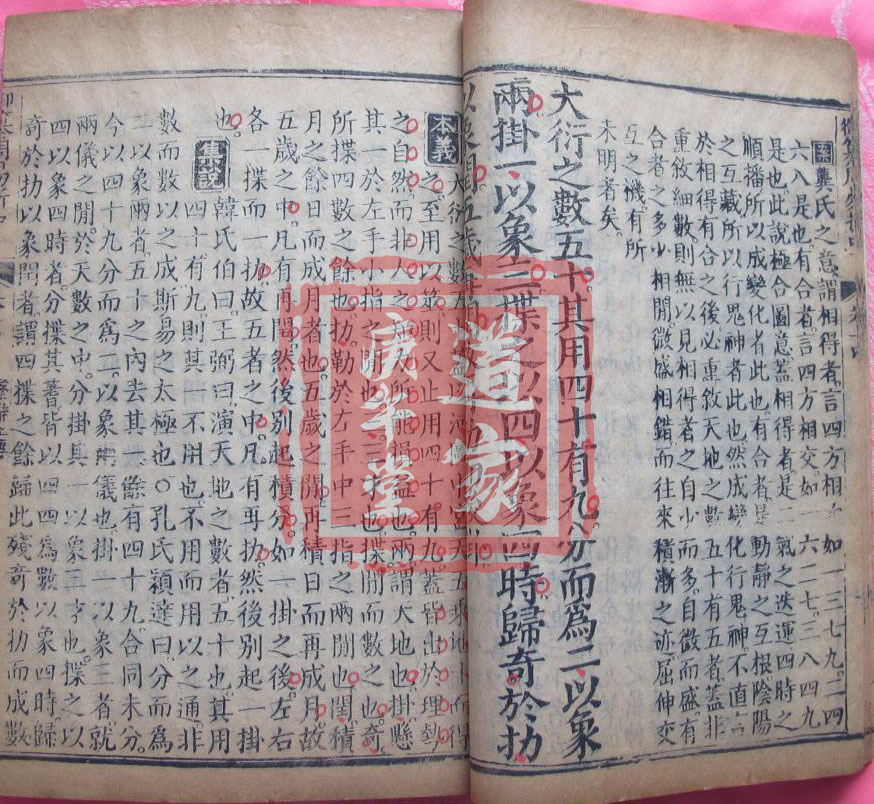 案龔氏之意謂相得者言四方相
如一三七九二四
六八是也有合者言四方相交如一六二七三八四九
是也此說極合圖意蓋相得者是二氣之迭運四時之
順播所以成變化者此也有合者是動靜之互根陰陽
之互藏所以行鬼神者此也然成變化行鬼神不直言
於相得有合之後必重敘天地之數五十有五者蓋非
重敘細數則無以見相得者之自少而多自微而盛有
合者之多少相間微盛相錯而往來積漸之迹屈伸交
互之機有所
未明者矣
大衍之數五十其用四十有九分而為二以象
兩掛一以象三揲之以四以象四時歸奇於扐
以象閏五歲
本義
大衍之數五十
之至用以筮則又止用四十有九蓋皆出於理勢
之自然而非人之
所能損益也兩謂天地也掛懸
其一於左手小指之間也三才也揲間而數之也奇
所揲四數之餘也扐勒於左手中三指之兩間也閏積
月之餘日而成月者也五歲之間再積日而再成月故
五歲之中凡有再閏然後別起積分如一掛之後左右
各一揲而一扐故五者之中凡有再扐然後別起一掛
也
集說
韓氏伯曰王弼曰演天地之數者五十也其用
四十有九則其一不用也不用而用以之通非
數而數以之成斯易之太極也○孔氏穎達曰分而為
二以象兩者五十之內去其一餘有四十九合同未分
今以四十九分而為二以象兩儀也掛一以象三者就
兩儀之間於天數之中分掛其一以象三才也揲之以
四以象四時者分揲其蓍皆以四四為數以象四時歸
奇於扐以象閏者謂四揲之餘歸此殘奇於扐而成數
道家